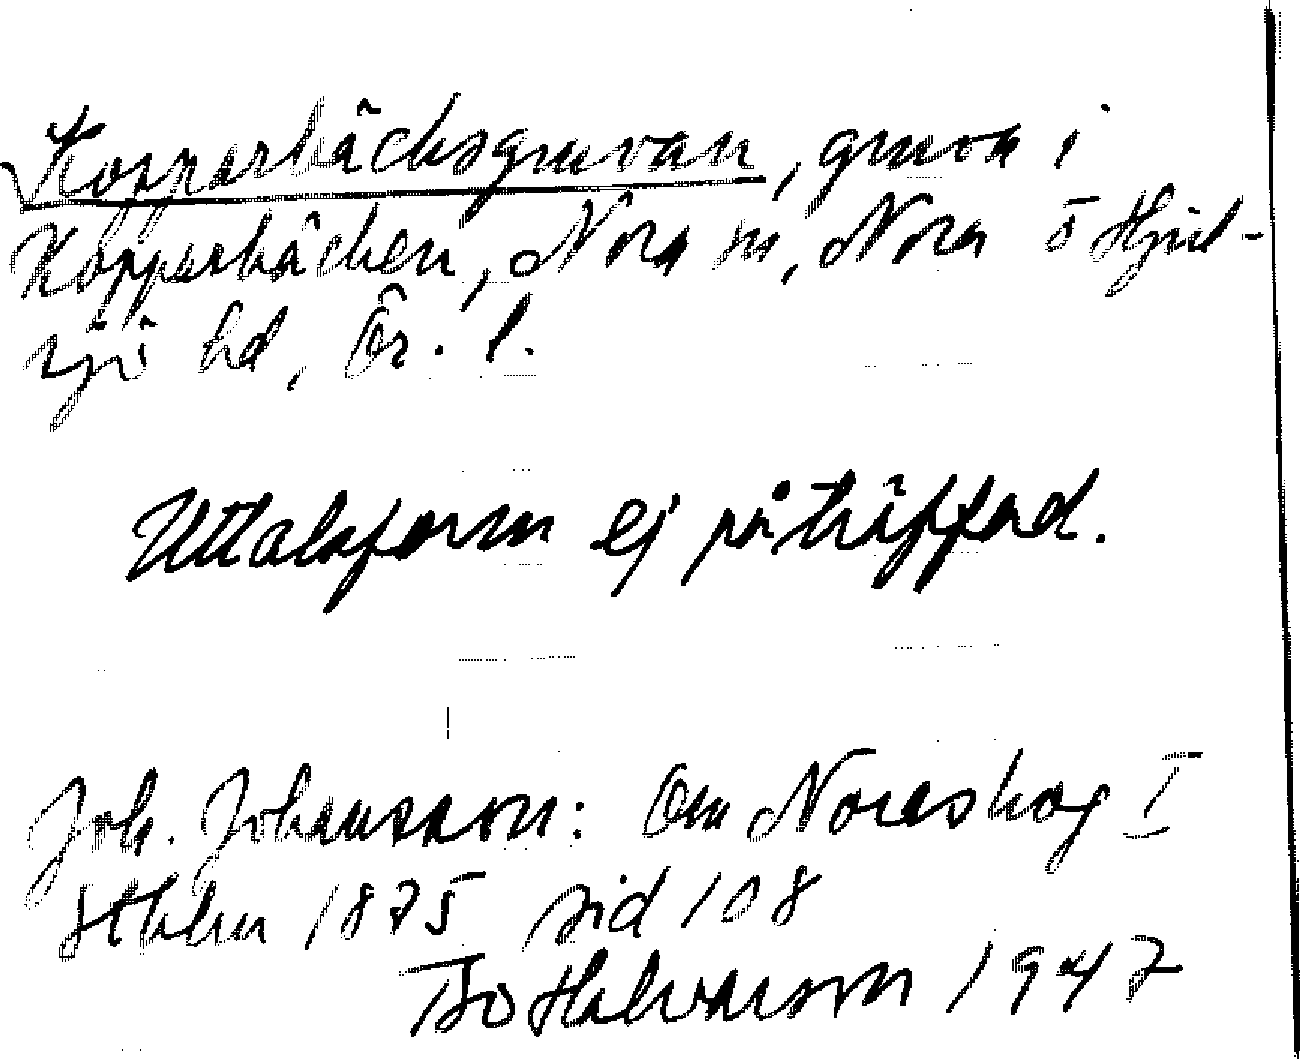 Kopparbäcksgruvan, gruva i
Kopparbäcken, Nora sn, Nora o Hjul-
sjö hd, Ör. l.
Uttalsform ej påträffad.
Joh. Johansson: Om Noraskog I
Sthlm 1875 sid 108
Bo Halvarson 1947